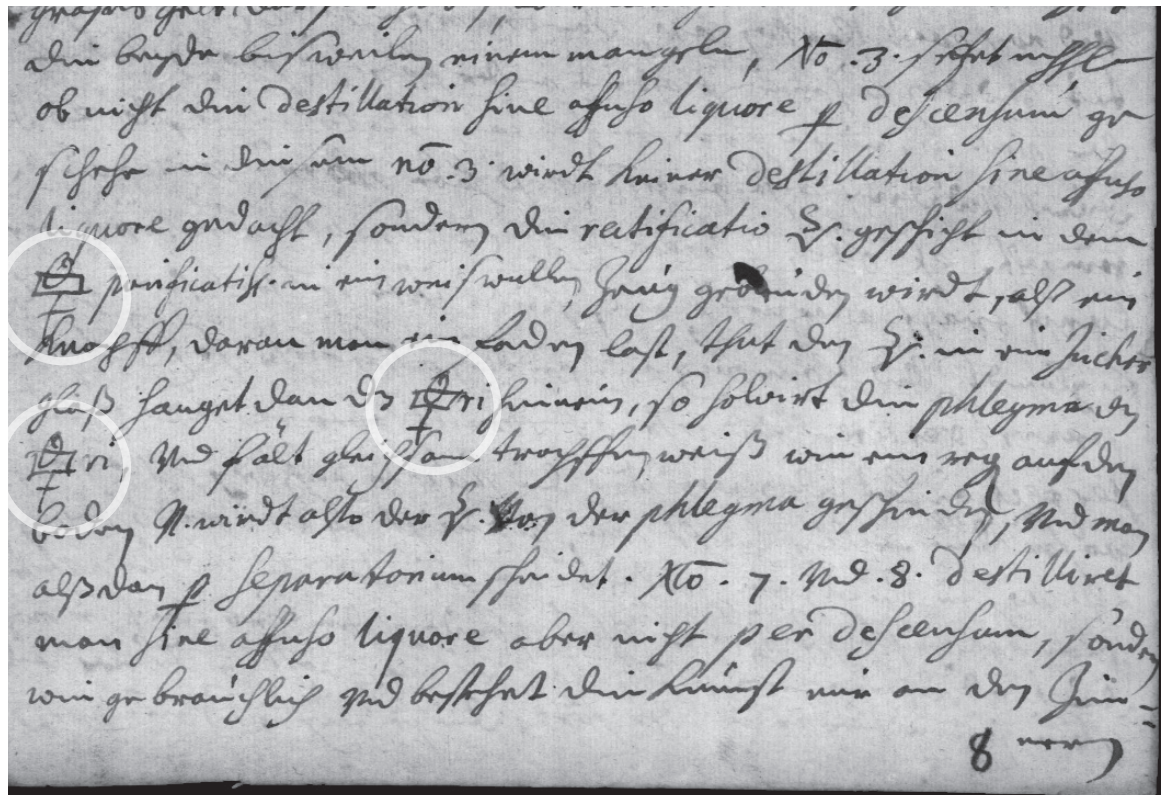 die beyde bisweilen einem mangeln, No. 3. stehet
ob nicht die destillation sine affuso liquore p descensum ge
schehe in diesem no. 3. wirdt keiner destillation sine affuso
liquore gedacht, sondern die rectificatio geschicht in dem
purificatiss. in ein weis wullen Zeüg gebunden wirdt, alß ein
Knopff, daran man ein faden last, thut den in ein Zucker
glaß hanget dan dz ri hinein, so solvirt die phlegma dz
ri, Vnd fält gleichsam tropffen weiß wie ein reg auf den
boden wirdt also der von der phlegma geschieden, Vnd man
alßdan p separatorium scheidet. No. 7. Vnd. 8. destilliret
man sine affuso liquore aber nicht per descensum, sonden
wie gebräuchlich Vnd bestehet die Kunst nur an den Zim-
8 mern